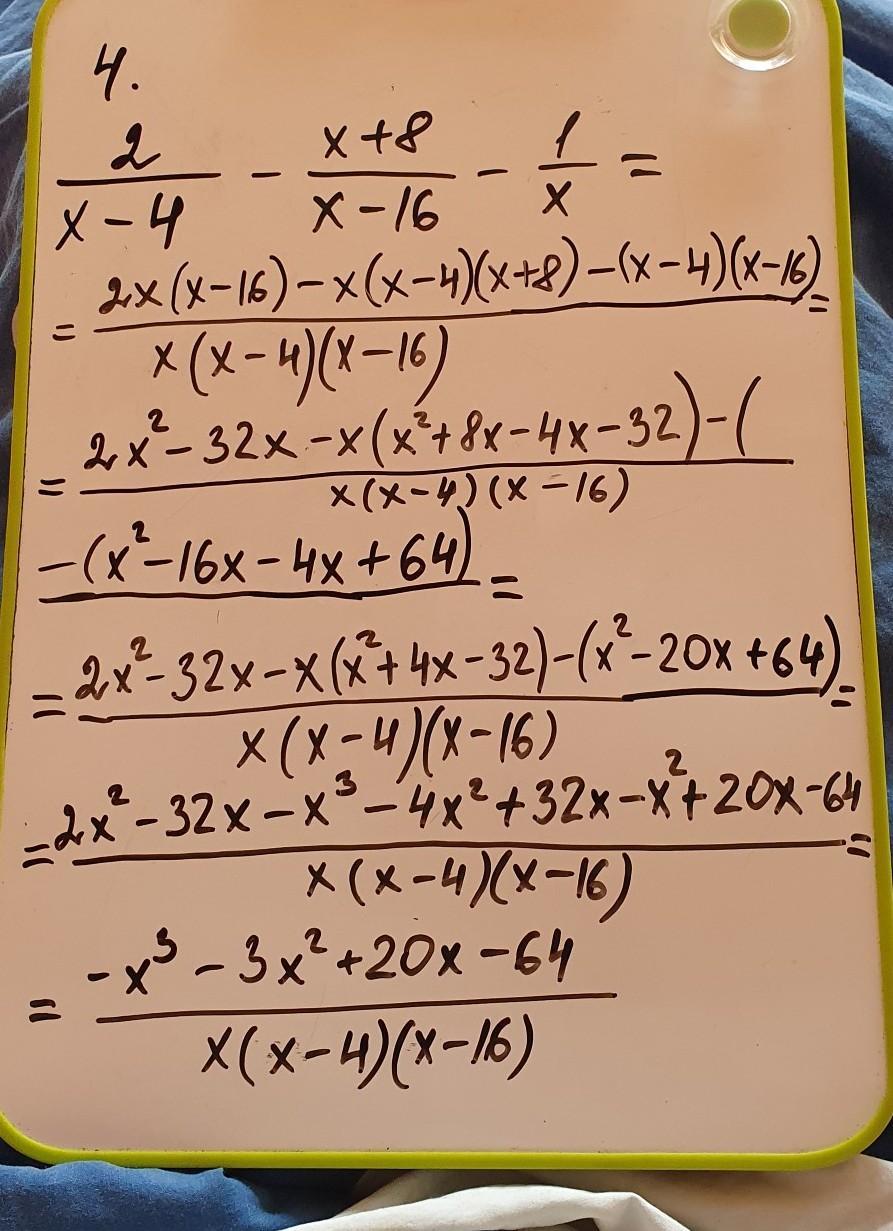 4.
2/(x-4) - (x+8)/(x-16) - 1/x =
= (2x(x-16) - x(x-4)(x+8) - (x-4)(x-16))/(x(x-4)(x-16)) =
= (2x² - 32x - x(x² + 8x - 4x - 32) - (/(x(x-4)(x-16))
-(x² - 16x - 4x + 64) =
= (2x² - 32x - x(x² + 4x - 32) - (x² - 20x + 64))/(x(x-4)(x-16)) =
= (2x² - 32x - x³ - 4x² + 32x - x² + 20x - 64)/(x(x-4)(x-16)) =
= (-x³ - 3x² + 20x - 64)/(x(x-4)(x-16))